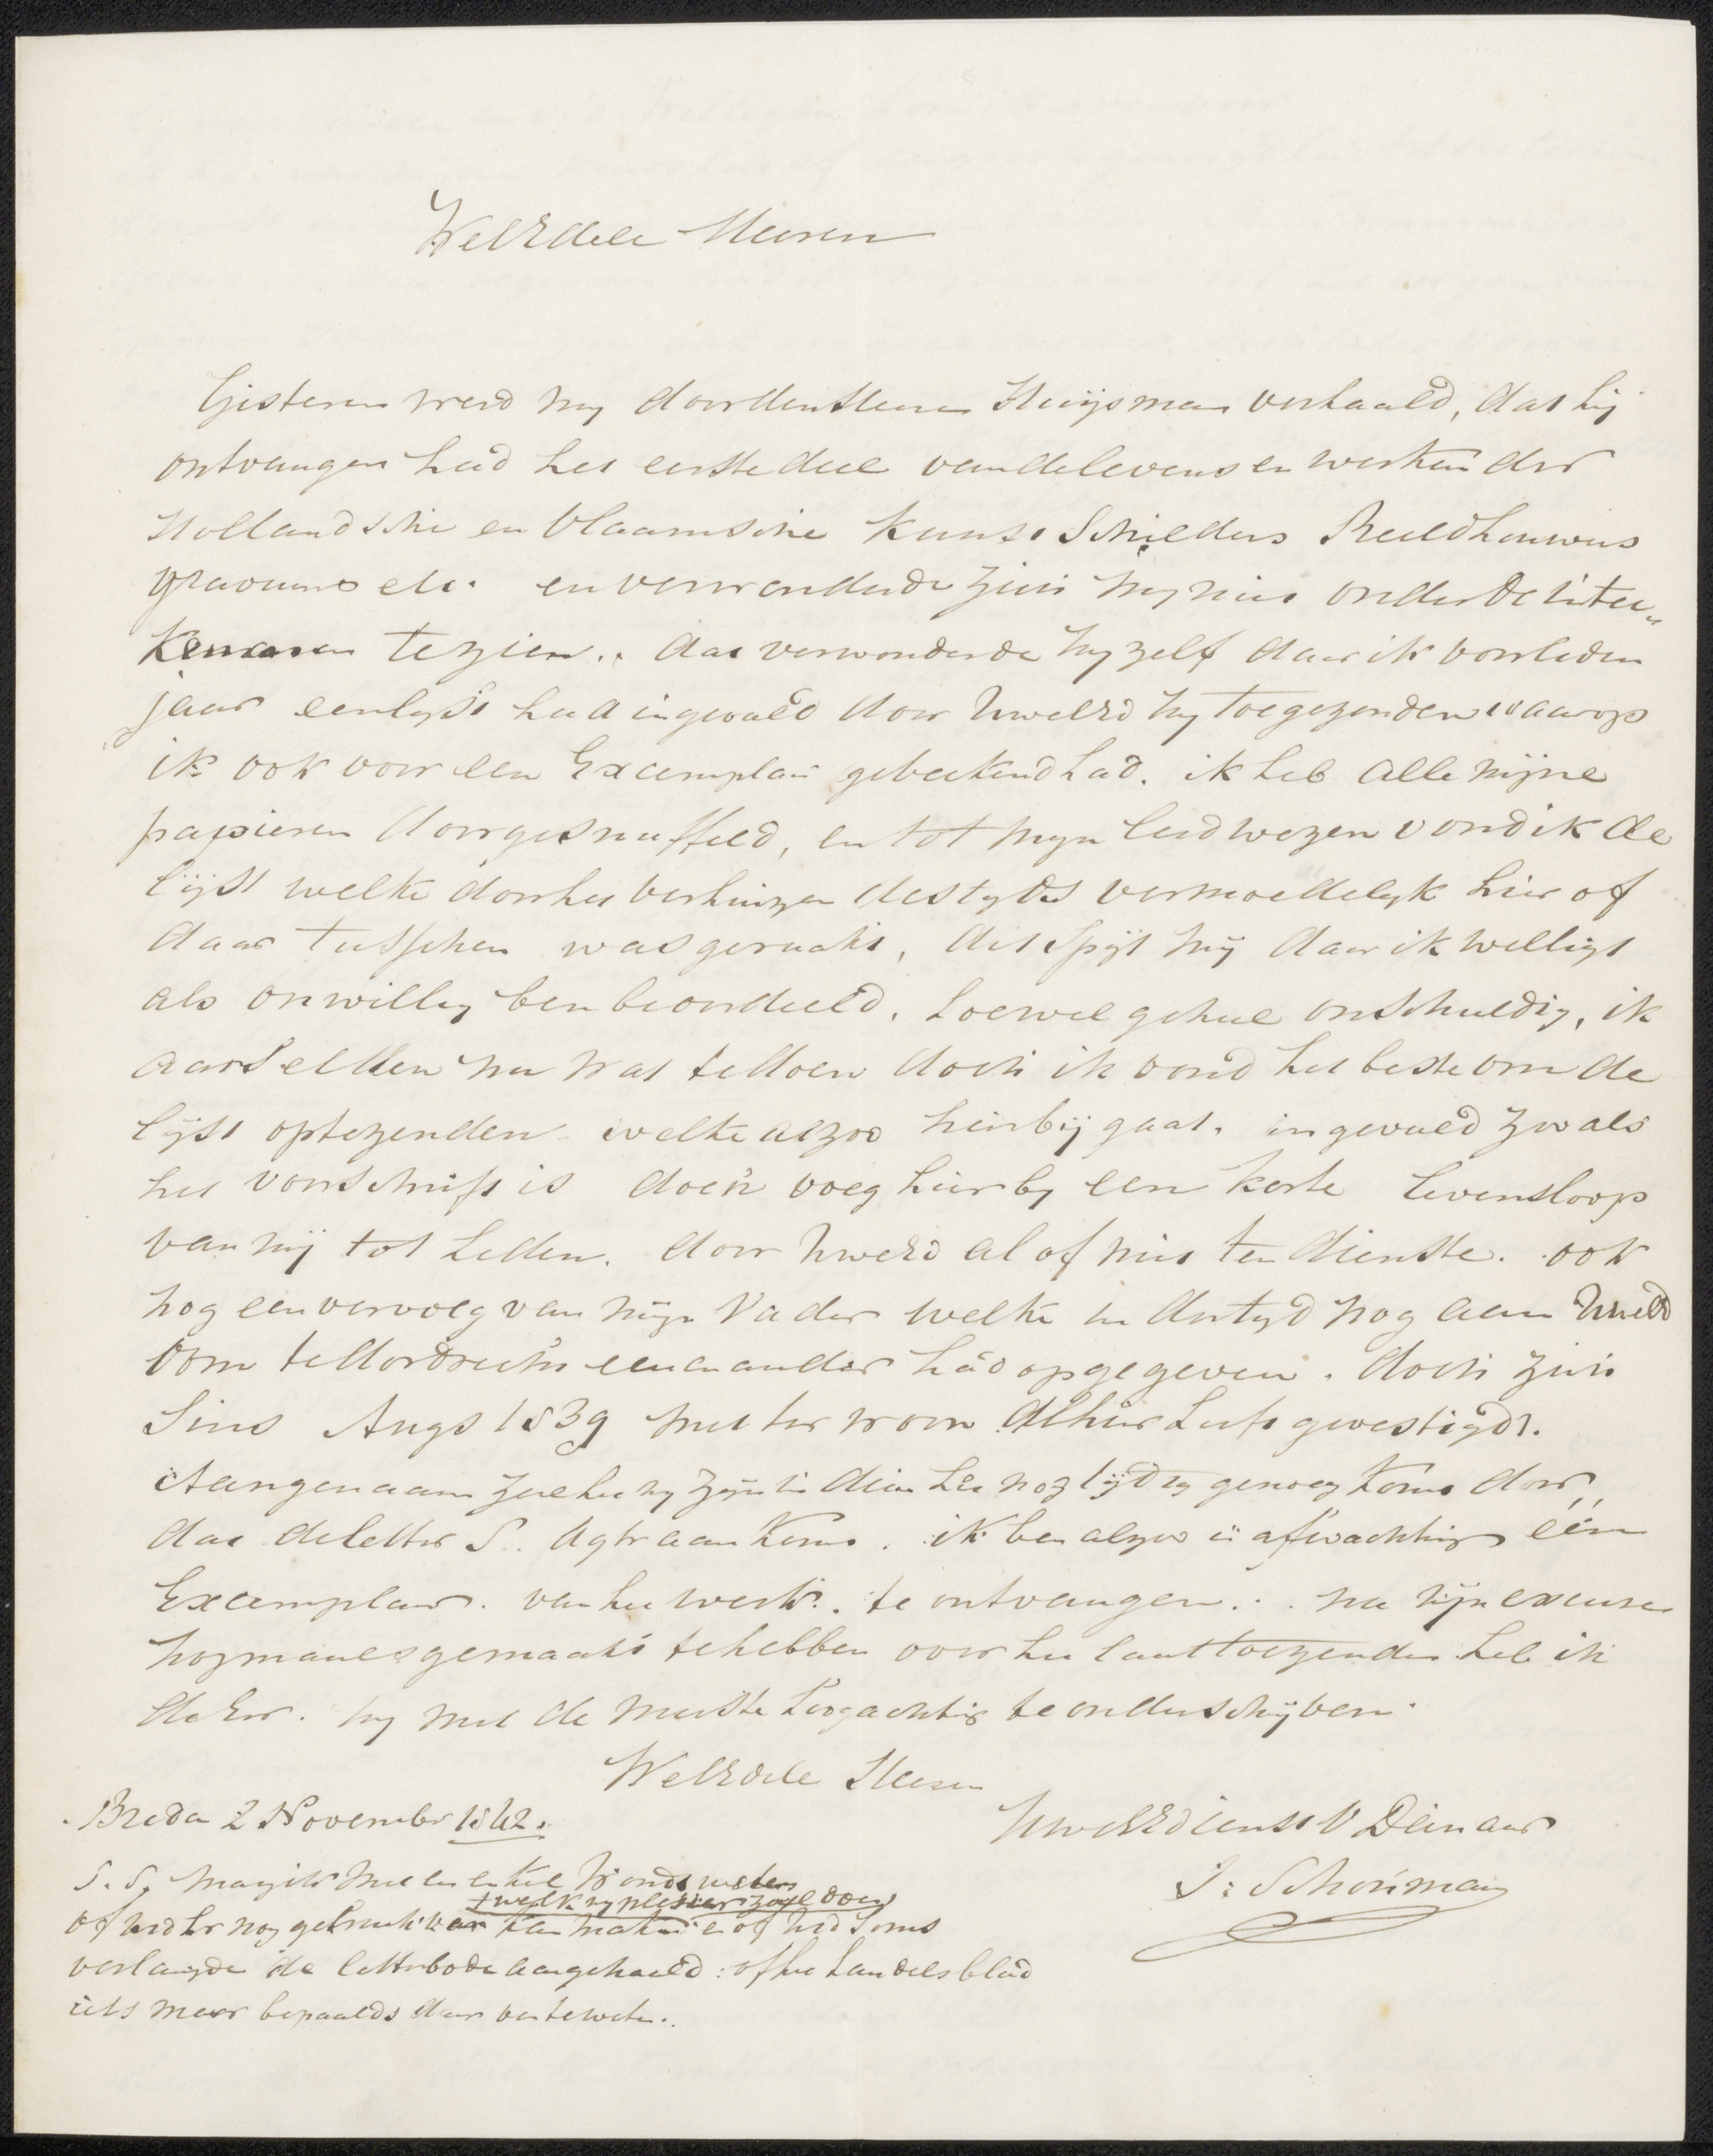 WelEdele Heeren
Gisteren werd my door den Heer Huijsman verhaald, dat hij
ontvangen had het eerste deel van de levens en werken der
Hollandsche en Vlaamsche Kunst Schilders Beeldhouwers
graveurs etc. en verwonderde zich my niet onder de intee"
kenaren te zien. dat verwonderde my zelf daar ik voorleden
jaar een lyst had ingevuld door UwelEd my toegezonden waarop
ik ook voor een Exemplaar geteekend had. ik heb alle mijne
papieren doorgesnuffeld, en tot myn leedwezen vond ik de
lijst welke door het verhuizen destyds vermoedelyk hier of
daar tusschen was geraakt, dit spijt mij daar ik welligt
als onwillig ben beoordeeld, hoewel geheel onschuldig, ik
aarselden nu wat te doen doch ik vond het beste om de
lijst optezenden welke alzoo hierbij gaat. ingevuld zoo als
het voorschrift is doch voeg hierby een korte levensloop
van mij tot heden. door UwelEd al of niet ten dienste. ook
nog een vervolg van mijn Vader welke in der tyd nog aan UwelEd
Oom te Dordrecht een en ander had opgegeven. doch zich
sins Augs 1839 met ter woon Alhier heeft gevestigd.
Aangenaam zal het my zijn in dien het nog tijdig genoeg komt door
dat de letter S. Agter aan komt. ik ben alzoo in afwachting een
Exemplaar. van het werk. te ontvangen. na mijn excuse
nogmaals gemaakt te hebben voor het laat toezenden heb ik
de Eer. my met de meeste hoogachting te onderschrijven
WelEdele Heeren
Breda 2 November 1842.
UwelEd dienst V Dienaar
J: Schoüman
P. S. mag ik met een enkel woord weten
't welk my plesier zoude doen
of UEd er nog gebruik van kan maken en of UEd soms
verlangde de letterbode aangehaald: of het handelsblad
iets meer bepaalds daar van te weten.